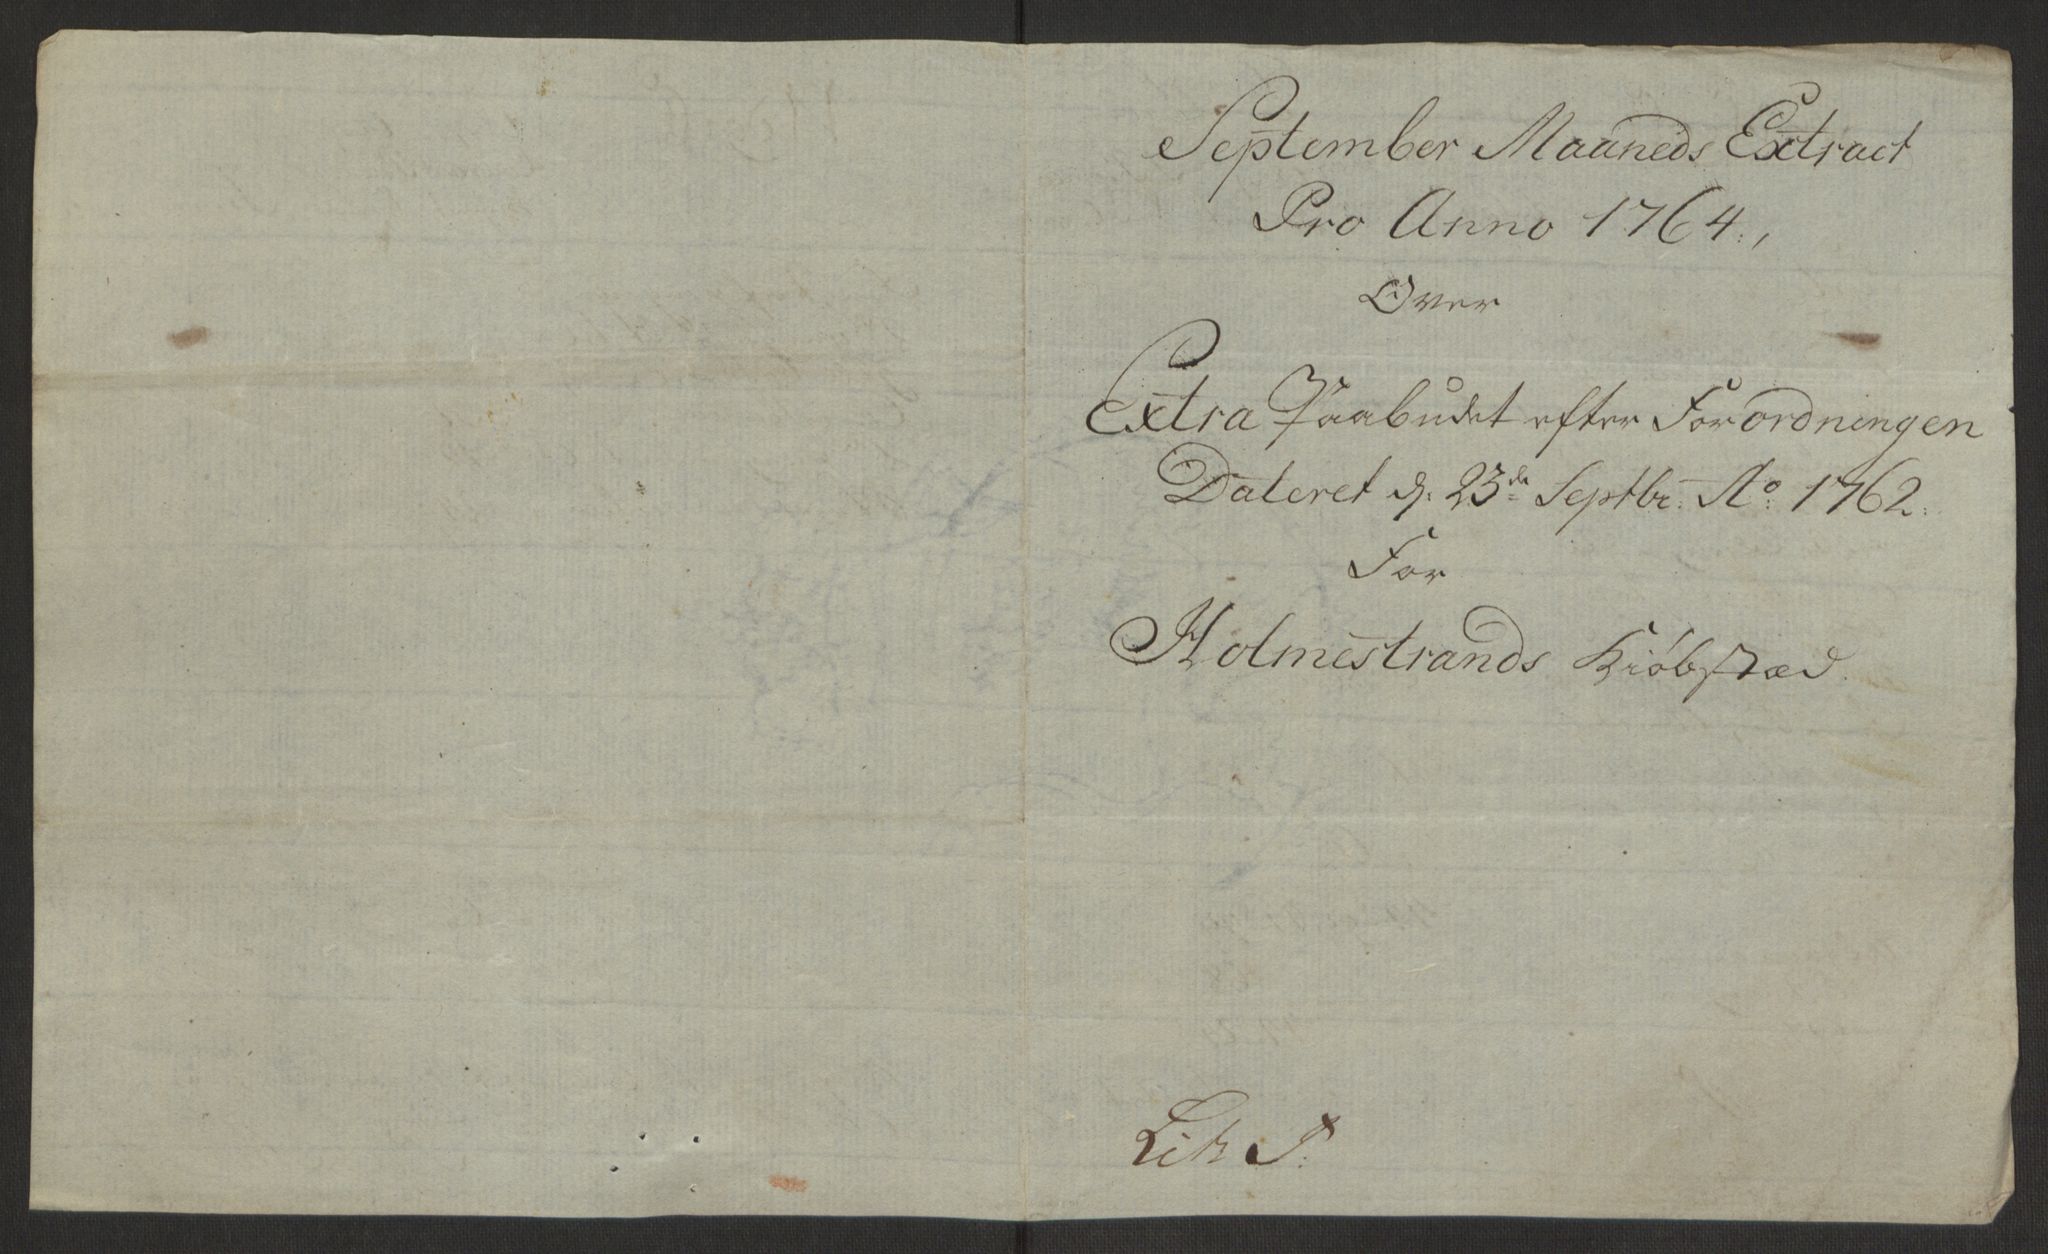 September Maaneds Extract
Pro Anno 1764.,
Over
Extra Paabudet efter Forordningen
Dateret d: 23de Septbr. Ao: 1762.
For
Holmestrands Kiöbstæd.
Litr